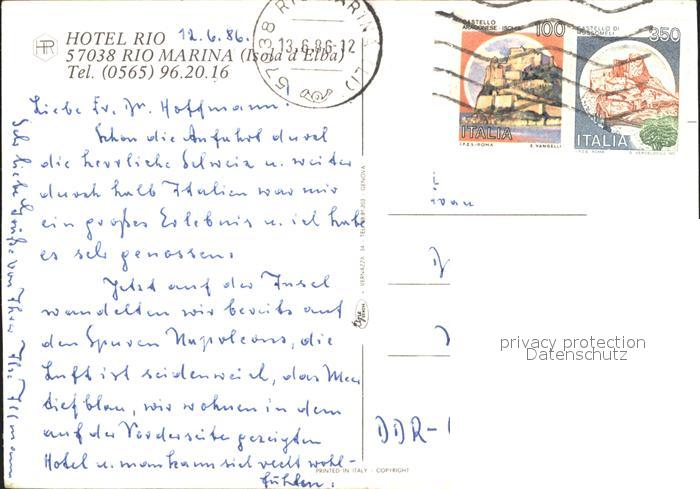 HR
HOTEL RIO 12.6.86.
57038 RIO MARINA (Isola d'Elba)
Tel. (0565) 96.20.16
57038 RIO MARINA (LI)
13.6.86.12
CASTELLO
ARAGONESE - ISCHIA
100
ITALIA
I.P.Z.S. - ROMA E. VANGELLI
CASTELLO DI
MUSSOMELI
350
ITALIA
I.P.Z.S. ROMA
Liebe Fr. Dr. Hoffmann.
Schon die Anfahrt durch
die herrliche Schweiz u. weiter
durch halb Italien war mir
ein großes Erlebnis u. ich habe
es sehr genossen.
Jetzt auf der Insel
wandelten wir bereits auf
den Spuren Napoleons, die
Luft ist seidenweich, das Meer
tiefblau, wir wohnen in dem
auf der Vorderseite gezeigten
Hotel u. man kann sich recht wohl-
fühlen.
Sehr liebe Grüße von Ihrer
DDR-
PRINTED IN ITALY - COPYRIGHT
privacy protection
Datenschutz